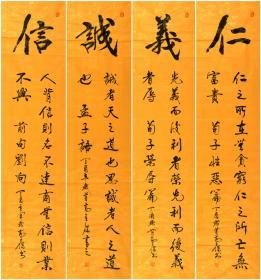 仁
仁之所在無貧窮仁之所亡無
富貴 荀子性惡篇
義
先義而後利者榮先利而後義
者辱 荀子榮辱篇
誠
誠者天之道也思誠者人之道
也 孟子語
信
人背信則名不達商無信則業
不興 前句劉向